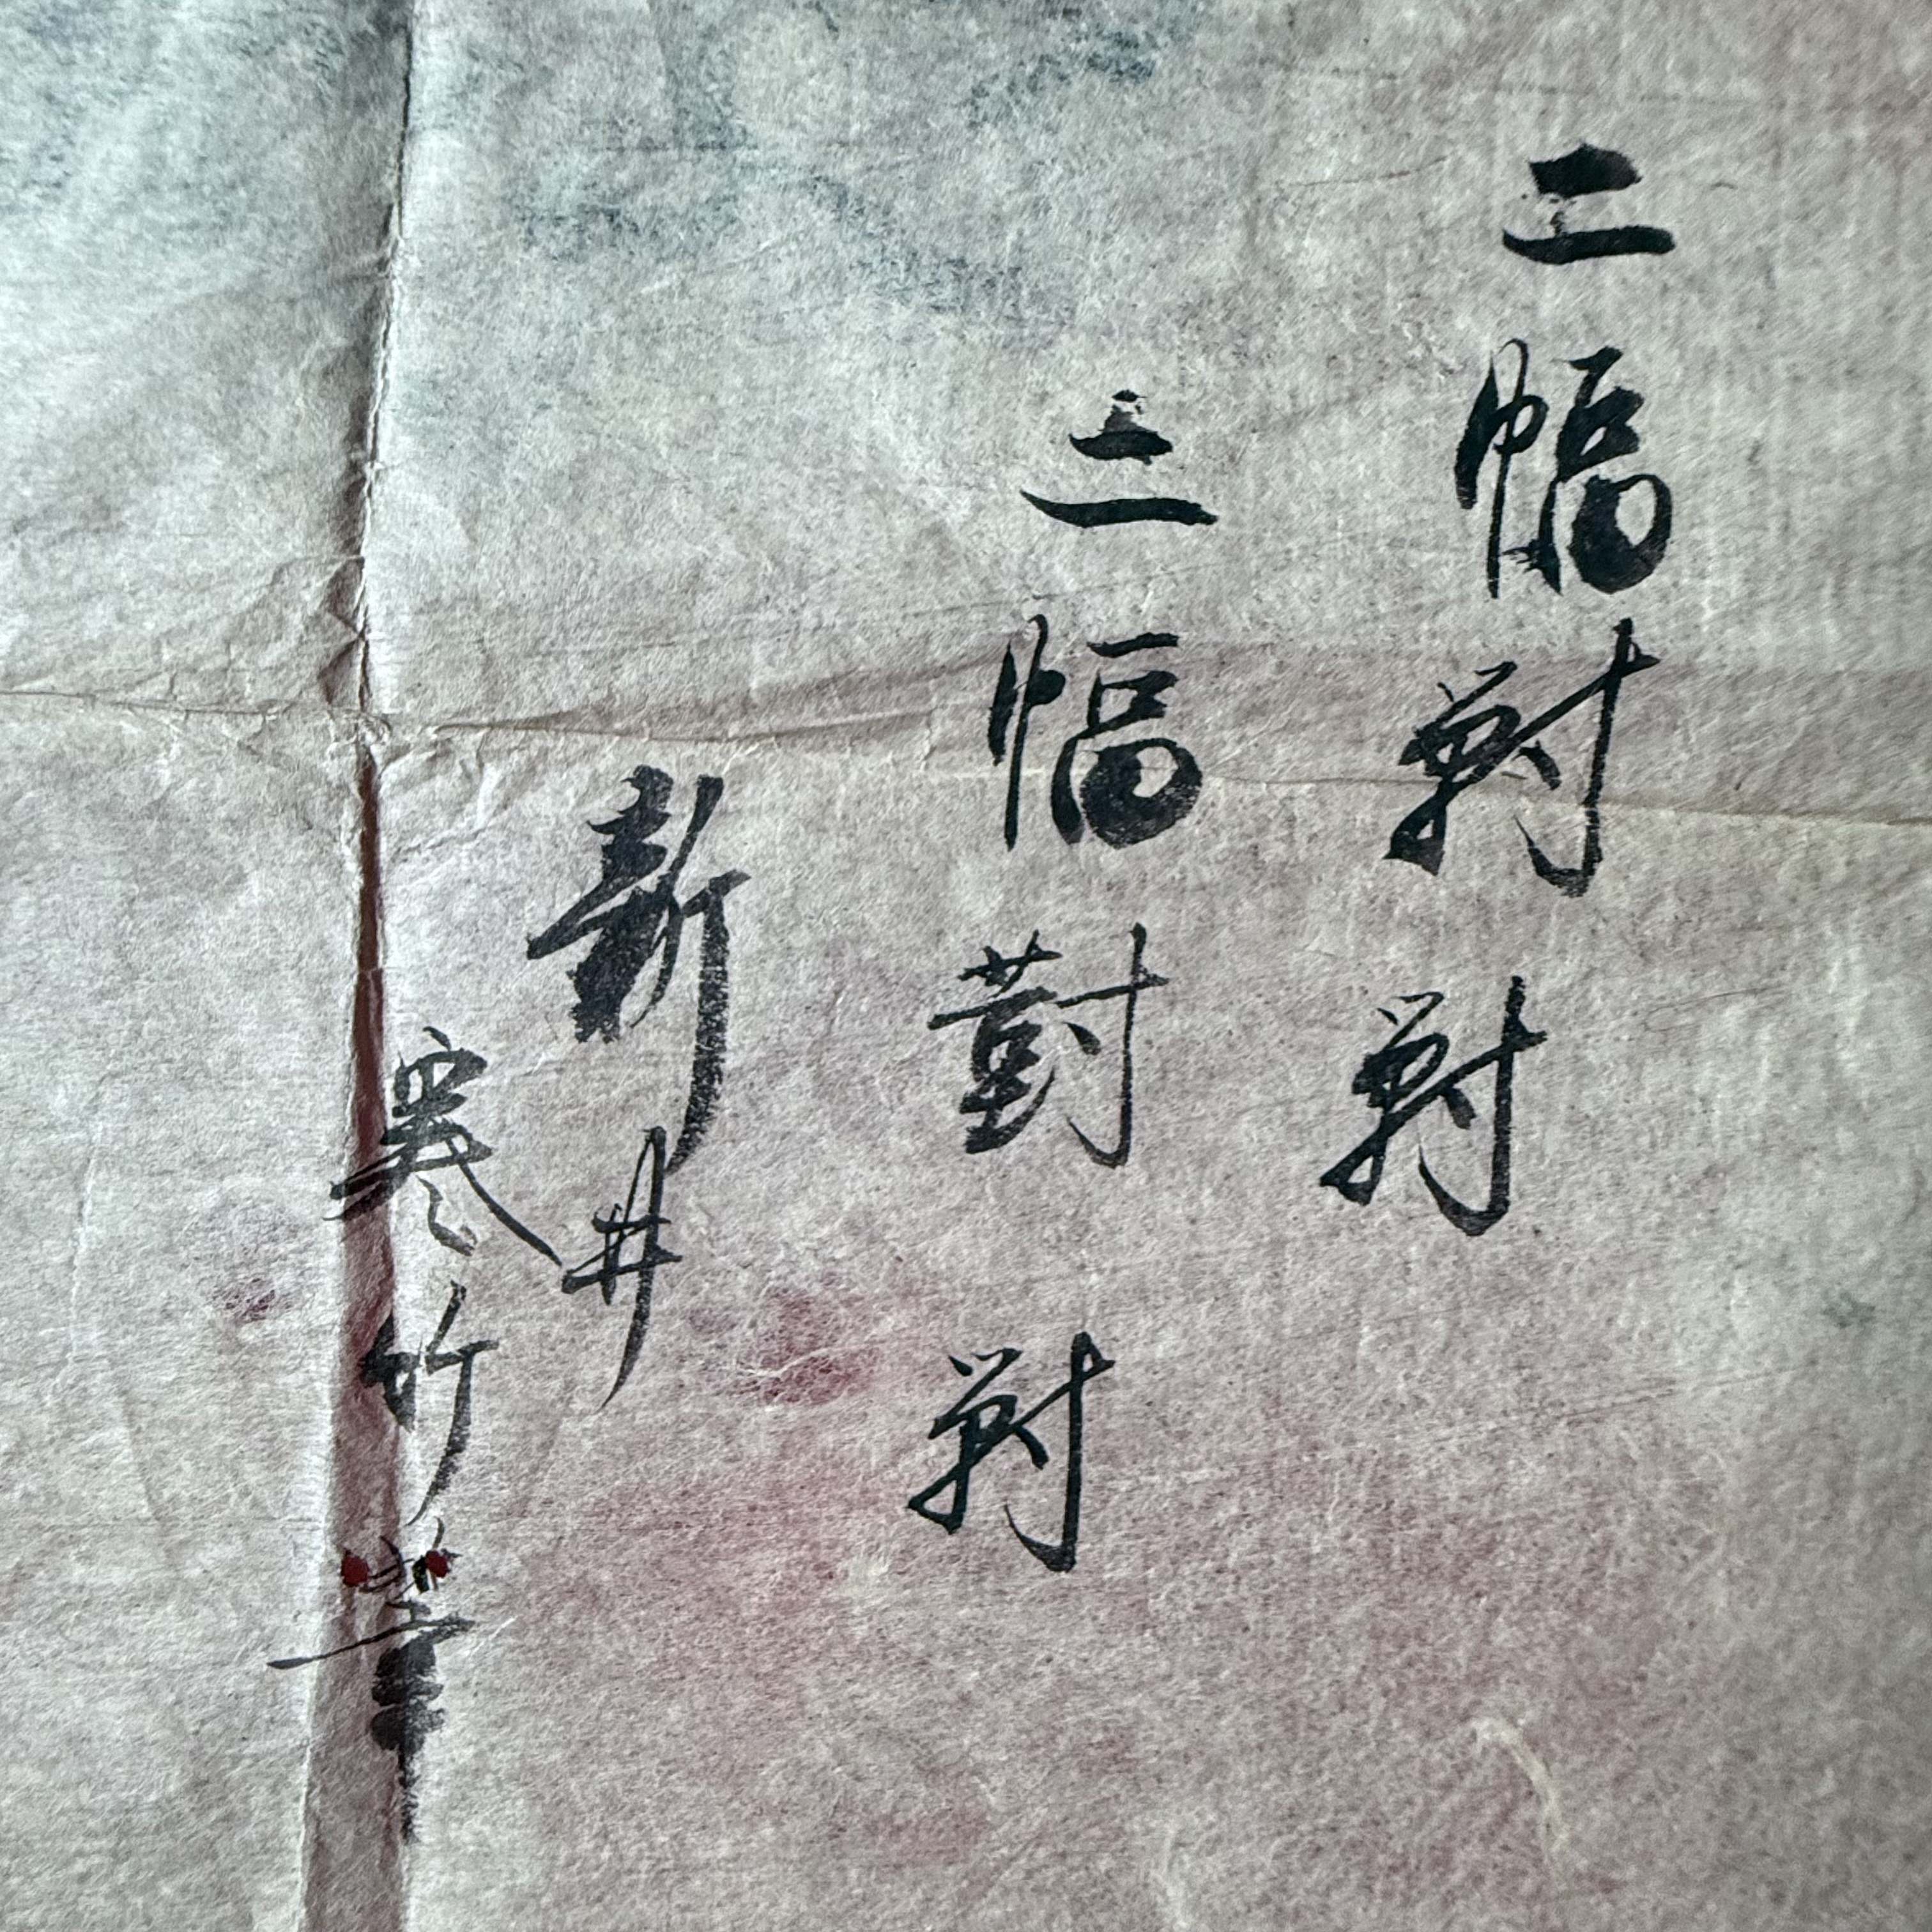 二幅對對
三幅對對
新井
寒竹筆